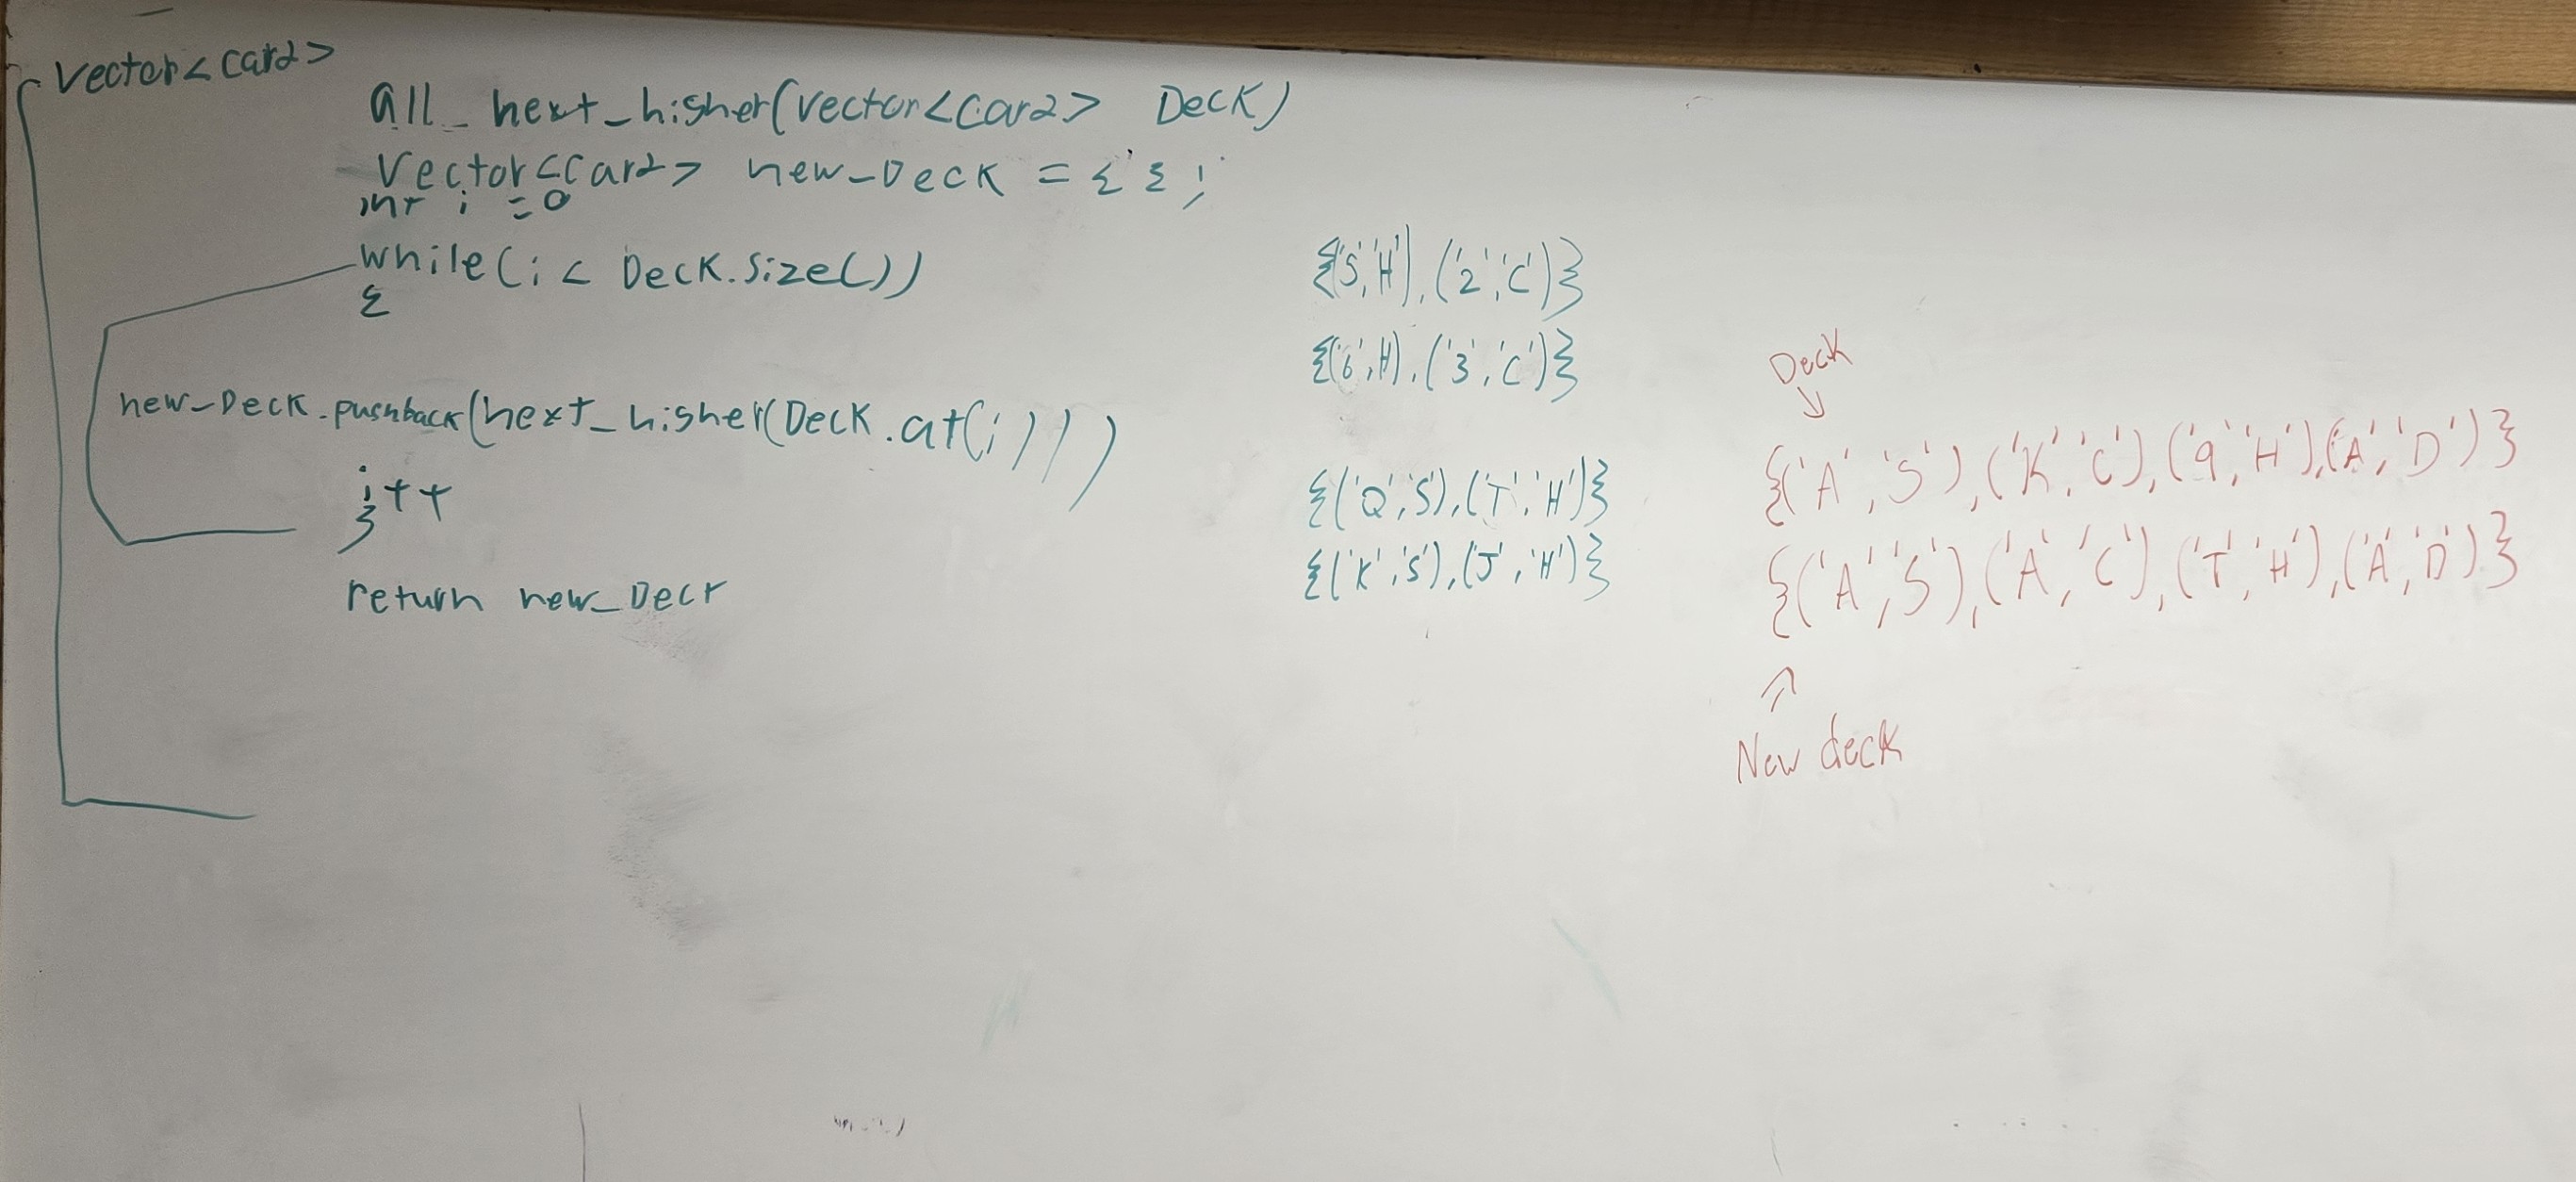 Vector<Card>
all_next_higher(Vector<Card> Deck)
Vector<Card> new_Deck = { } ;
int i = 0
while(i < Deck.size())
{
new_Deck.pushback(next_higher(Deck.at(i)))
i++
}
return new_Deck
{('5','H'),('2','C')}
{('6',H),('3','C')}
{('Q','S'),('T','H')}
{('K','S'),('J','H')}
Deck
{('A','S'),('K','C'),('9','H'),('A','D')}
{('A','S'),('A','C'),('T','H'),('A','D')}
New deck